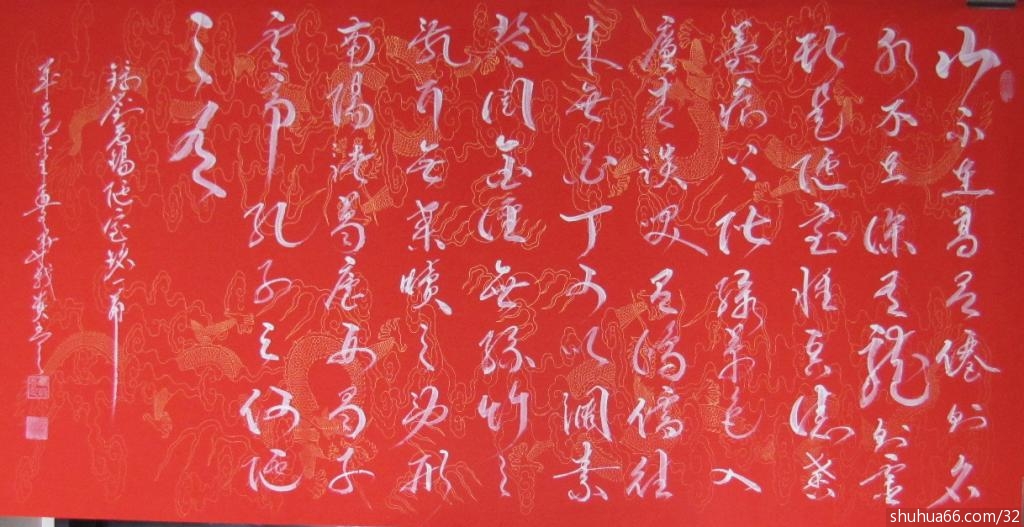 山不在高有僊则名
水不在深有龍则靈
斯是陋室惟吾德馨
苔痕上階綠草色入
簾青談笑有鴻儒往
来無白丁可以調素
琴閱金經無絲竹之
亂耳無案牘之勞形
南陽諸葛廬西蜀子
雲亭孔子云何陋
之有
錄劉禹錫陋室銘一節
乙未
shuhua66.com/32